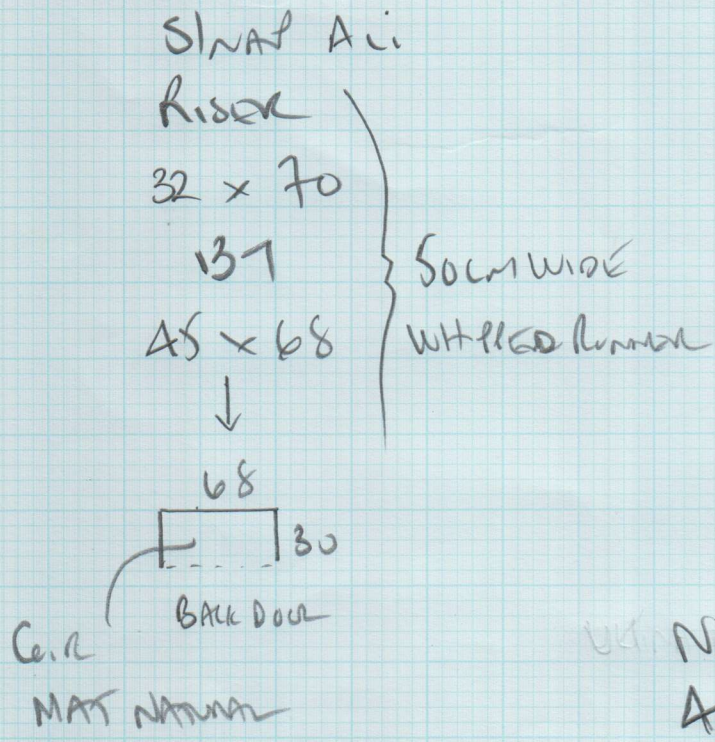 SINAP Ali
RISER
32 x 70
137
45 x 68
50cm WIDE
WHIPPED RUNNER
↓
68
30
BACK DOOR
Coir
MAT NATURAL
N
4